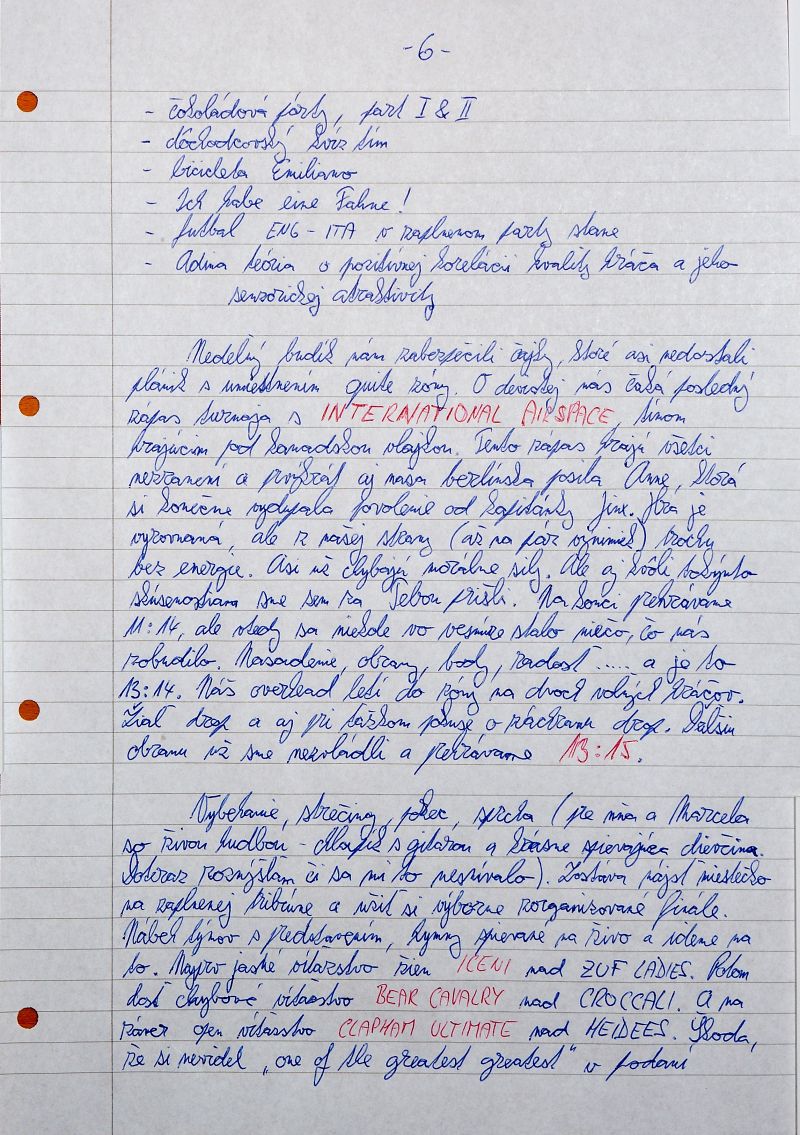 -6-
- čokoládová párty, part I & II
- dôchodcovský kvíz tím
- bicicleta Emiliano
- Ich habe eine Fahne!
- futbal ENG-ITA v zaplnenom party stane
- Adma teória o pozitívnej korelácii kvality hráča a jeho
senzorickej atraktivity
Nedeľný budík nám zabezpečili čajky, ktoré asi nedostali
plánik s umiestnením quite zóny. O deviatej nás čaká posledný
zápas turnaja s INTERNATIONAL AIRSPACE, tímom
hrajúcim pod kanadskou vlajkou. Tento zápas hrajú všetci
nezranení a prvýkrát aj naša berlínska posila Anne, ktorá
si konečne vydupala povolenie od kapitánky Jinx. Hra je
vyrovnaná, ale z našej strany (až na pár výnimiek) trochu
bez energie. Asi už chýbajú morálne sily. Ale aj kvôli takýmto
skúsenostiam sme sem za Tebou prišli. Na konci prehrávame
11:14, ale vtedy sa niekde vo vesmíre stalo niečo, čo nás
zobudilo. Nasadenie, obrany, body, radosť ..... a je to
13:14. Náš overhead letí do zóny na dvoch voľných hráčov.
Žiaľ drop a aj pri ťažkom pokuse o záchranu drop. Ďalšiu
obranu už sme nezvládli a prehrávame 13:15.
Vybehanie, strečing, pokec, sprcha (pre mňa a Marcela
so živou hudbou - chlapík s gitarou a krásne spievajúca dievčina.
Doteraz rozmýšľam či sa mi to nesnívalo). Zostáva nájsť miestečko
na zaplnenej tribúne a užiť si výborne zorganizované finále.
Nábeh týmov s predstavením, hymny spievané na živo a ideme na
to. Najprv jasné víťazstvo žien ICENI nad ZUF LADIES. Potom
dosť chybové víťazstvo BEAR CAVALRY nad CROCCALI. A na
záver open víťazstvo CLAPHAM ULTIMATE nad HEIDEES. Škoda,
že si nevidel „one of the greatest greatest" v podaní